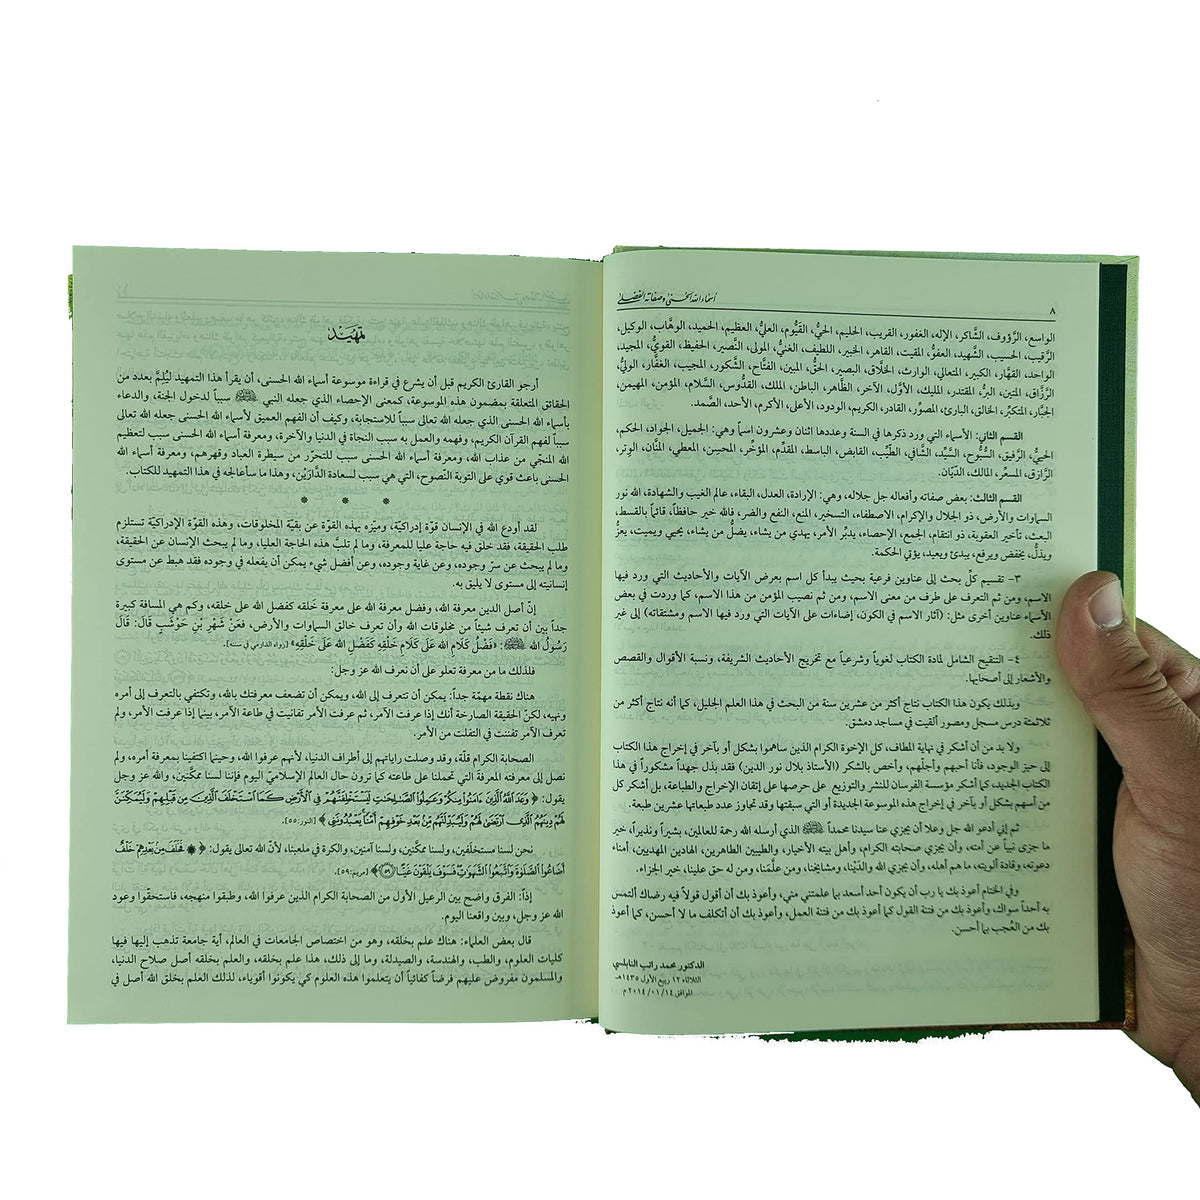 ٨
أسماء الله الحسنى وصفاته الفضلى
الواسع، الرَّؤوف، الشَّاكر، الإله، الغفور، القريب، الحليم، الحيُّ، القيُّوم، العليُّ، العظيم، الحميد، الوهَّاب، الوكيل،
الرَّقيب، الحسيب، الشَّهيد، العفوُّ، المقيت، القاهر، الخبير، اللطيف، الغنيُّ، المولى، النَّصير، الحفيظ، القويُّ، المجيد،
الواحد، القهَّار، الكبير، المتعالي، الوارث، الخلَّاق، البصير، الحقُّ، المبين، الفتَّاح، الشَّكور، المجيب، الغفَّار، الوليُّ،
الرَّزَّاق، المتين، البرُّ، المقتدر، المليك، الأوَّل، الآخر، الظَّاهر، الباطن، الملك، القدُّوس، السَّلام، المؤمن، المهيمن،
الجبَّار، المتكبِّر، الخالق، البارئ، المصوِّر، القادر، الكريم، الودود، الأعلى، الأكرم، الأحد، الصَّمد.
القسم الثاني: الأسماء التي ورد ذكرها في السنة وعددها اثنان وعشرون اسماً وهي: الجميل، الجواد، الحكم،
الحييُّ، الرَّفيق، السُّبُّوح، السَّيِّد، الشَّافي، الطَّيِّب، القابض، الباسط، المقدِّم، المؤخِّر، المحسن، المعطي، المنَّان، الوتر،
الرَّازق، المسعِّر، المالك، الدَّيَّان.
القسم الثالث: بعض صفاته وأفعاله جل جلاله، وهي: الإرادة، العدل، البقاء، عالم الغيب والشهادة، الله نور
السماوات والأرض، ذو الجلال والإكرام، الاصطفاء، التسخير، المنع، النفع والضر، فالله خير حافظاً، قائماً بالقسط،
البعث، تأخير العقوبة، ذو انتقام، الجمع، الإحصاء، يدبِّر الأمر، يهدي من يشاء، يضلُّ من يشاء، يحيي ويميت، يعزُّ
ويذلُّ، يخفض ويرفع، يبدئ ويعيد، يؤتي الحكمة.
٣- تقسيم كلِّ بحث إلى عناوين فرعية بحيث يبدأ كل اسم بعرض الآيات والأحاديث التي ورد فيها
الاسم، ومن ثم التعرف على طرف من معنى الاسم، ومن ثم نصيب المؤمن من هذا الاسم، كما وردت في بعض
الأسماء عناوين أخرى مثل: (آثار الاسم في الكون، إضاءات على الآيات التي ورد فيها الاسم ومشتقاته) إلى غير
ذلك.
٤- التنقيح الشامل لمادة الكتاب لغوياً وشرعياً مع تخريج الأحاديث الشريفة، ونسبة الأقوال والقصص
والأشعار إلى أصحابها.
وبذلك يكون هذا الكتاب نتاج أكثر من عشرين سنة من البحث في هذا العلم الجليل، كما أنه نتاج أكثر من
ثلاثمئة درس مسجل ومصور ألقيت في مساجد دمشق.
ولا بد من أن أشكر في نهاية المطاف، كل الإخوة الكرام الذين ساهموا بشكل أو بآخر في إخراج هذا الكتاب
إلى حيز الوجود، فأنا أحبهم وأجلّهم، وأخص بالشكر (الأستاذ بلال نور الدين) فقد بذل جهداً مشكوراً في هذا
الكتاب الجديد، كما أشكر مؤسسة الفرسان للنشر والتوزيع على حرصها على إتقان الإخراج والطباعة، بل أشكر كل
من أسهم بشكل أو بآخر في إخراج هذه الموسوعة الجديدة أو التي سبقتها وقد تجاوز عدد طبعاتها عشرين طبعة.
ثم إني أدعو الله جل وعلا أن يجزي عنا سيدنا محمداً ﷺ الذي أرسله الله رحمة للعالمين، بشيراً ونذيراً، خير
ما جزى نبياً عن أمته، وأن يجزي صحابته الكرام، وأهل بيته الأخيار، والطيبين الطاهرين، الهادين المهديين، أمناء
دعوته، وقادة ألويته، ما هم أهله، وأن يجزي الله والدَيْنا، ومشايخنا، ومن علَّمَنا، ومن له حق علينا، خير الجزاء.
وفي الختام أعوذ بك يا رب أن يكون أحد أسعد بما علمتني مني، وأعوذ بك أن أقول قولاً فيه رضاك ألتمس
به أحداً سواك، وأعوذ بك من فتنة القول كما أعوذ بك من فتنة العمل، وأعوذ بك أن أتكلف ما لا أحسن، كما أعوذ
بك من العُجب بما أحسن.
الدكتور محمد راتب النابلسي
الثلاثاء ١٢ ربيع الأول ١٤٣٥هـ
الموافق ١٤ / ٠١ / ٢٠١٤م
تمهيد
أرجو القارئ الكريم قبل أن يشرع في قراءة موسوعة أسماء الله الحسنى، أن يقرأ هذا التمهيد ليُلِمَّ بعدد من
الحقائق المتعلقة بمضمون هذه الموسوعة، كمعنى الإحصاء الذي جعله النبي ﷺ سبباً لدخول الجنة، والدعاء
بأسماء الله الحسنى الذي جعله الله تعالى سبباً للاستجابة، وكيف أن الفهم العميق لأسماء الله الحسنى جعله الله تعالى
سبباً لفهم القرآن الكريم، وفهمه والعمل به سبب النجاة في الدنيا والآخرة، ومعرفة أسماء الله الحسنى سبب لتعظيم
الله المنجّي من عذاب الله، ومعرفة أسماء الله الحسنى سبب للتحرّر من سيطرة العباد وقهرهم، ومعرفة أسماء الله
الحسنى باعث قوي على التوبة النّصوح، التي هي سبب لسعادة الدَّارَيْن، وهذا ما سأعالجه في هذا التمهيد للكتاب.
* * *
لقد أودع الله في الإنسان قوّة إدراكيّة، وميّزه بهذه القوّة عن بقيّة المخلوقات، وهذه القوّة الإدراكيّة تستلزم
طلب الحقيقة، فقد خلق فيه حاجة عليا للمعرفة، وما لم تلبَّ هذه الحاجة العليا، وما لم يبحث الإنسان عن الحقيقة،
وما لم يبحث عن سرّ وجوده، وعن غاية وجوده، وعن أفضل شيء يمكن أن يفعله في وجوده فقد هبط عن مستوى
إنسانيته إلى مستوى لا يليق به.
إنّ أصل الدين معرفة الله، وفضل معرفة الله على معرفة خَلقه كفضل الله على خلقه، وكم هي المسافة كبيرة
جداً بين أن تعرف شيئاً من مخلوقات الله وأن تعرف خالق السماوات والأرض، فَعَنْ شَهْرِ بْنِ حَوْشَبٍ قَالَ: قَالَ
رَسُولُ الله ﷺ: «فَضْلُ كَلَامِ الله عَلَى كَلَامِ خَلْقِهِ كَفَضْلِ الله عَلَى خَلْقِهِ» [رواه الدارمي في سننه].
فلذلك ما من معرفة تعلو على أن نعرف الله عز وجل:
هناك نقطة مهمّة جداً: يمكن أن تتعرف إلى الله، ويمكن أن تضعف معرفتك بالله، وتكتفي بالتعرف إلى أمره
ونهيه، لكنّ الحقيقة الصارخة أنك إذا عرفت الآمر، ثم عرفت الأمر تفانيت في طاعة الآمر، بينما إذا عرفت الأمر، ولم
تعرف الآمر تفننت في التفلت من الأمر.
الصحابة الكرام قلّة، وقد وصلت راياتهم إلى أطراف الدنيا، لأنهم عرفوا الله، وحينما اكتفينا بمعرفة أمره، ولم
نصل إلى معرفته المعرفة التي تحملنا على طاعته كما ترون حال العالم الإسلاميّ اليوم فإننا لسنا ممكَّنين، والله عز وجل
يقول: ﴿ وَعَدَ اللَّهُ الَّذِينَ ءَامَنُوا مِنكُمْ وَعَمِلُوا الصَّالِحَاتِ لَيَسْتَخْلِفَنَّهُمْ فِي الْأَرْضِ كَمَا اسْتَخْلَفَ الَّذِينَ مِن قَبْلِهِمْ وَلَيُمَكِّنَنَّ
لَهُمْ دِينَهُمُ الَّذِي ارْتَضَى لَهُمْ وَلَيُبَدِّلَنَّهُم مِّن بَعْدِ خَوْفِهِمْ أَمْنًا يَعْبُدُونَنِي ﴾ [النور: ٥٥].
نحن لسنا مستخلَفين، ولسنا ممكَّنين، ولسنا آمنين، والكرة في ملعبنا، لأنّ الله تعالى يقول: ﴿ فَخَلَفَ مِن بَعْدِهِمْ خَلْفٌ
أَضَاعُوا الصَّلَاةَ وَاتَّبَعُوا الشَّهَوَاتِ فَسَوْفَ يَلْقَوْنَ غَيًّا ٥٩ ﴾ [مريم: ٥٩].
إذاً: الفرق واضح بين الرعيل الأول من الصحابة الكرام الذين عرفوا الله، وطبقوا منهجه، فاستحقّوا وعود
الله عز وجل، وبين واقعنا اليوم.
قال بعض العلماء: هناك علم بخلقه، وهو من اختصاص الجامعات في العالم، أية جامعة تذهب إليها فيها
كليات العلوم، والطب، والهندسة، والصيدلة، وما إلى ذلك، هذا علم بخلقه، والعلم بخلقه أصل صلاح الدنيا،
والمسلمون مفروض عليهم فرضاً كفائياً أن يتعلموا هذه العلوم كي يكونوا أقوياء، لذلك العلم بخلق الله أصل في